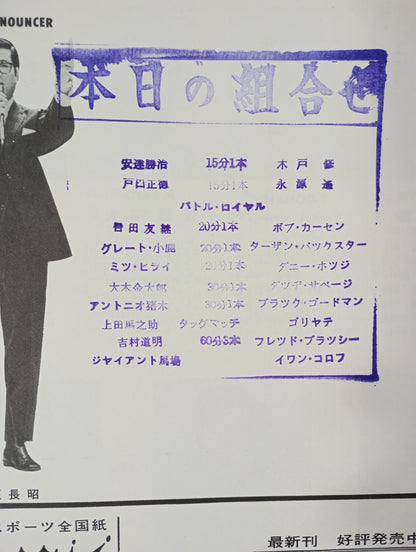 NOUNCER
本日の組合せ
安達勝治 15分1本 木戸修
戸口正徳 15分1本 永源遙
バトル・ロイヤル
吉田友継 20分1本 ボブ・カーセン
グレート・小鹿 20分1本 ターザン・バツクスター
ミツ・ヒライ 20分1本 ダニー・ホツジ
大木金太郎 30分1本 ダツチ・サベージ
アントニオ猪木 30分1本 ブラツク・ゴードマン
上田馬之助 タッグマッチ ゴリヤテ
吉村道明 60分3本 フレツド・ブラツシー
ジヤイアント馬場 イワン・コロフ
長昭
スポーツ全国紙
最新刊 好評発売中